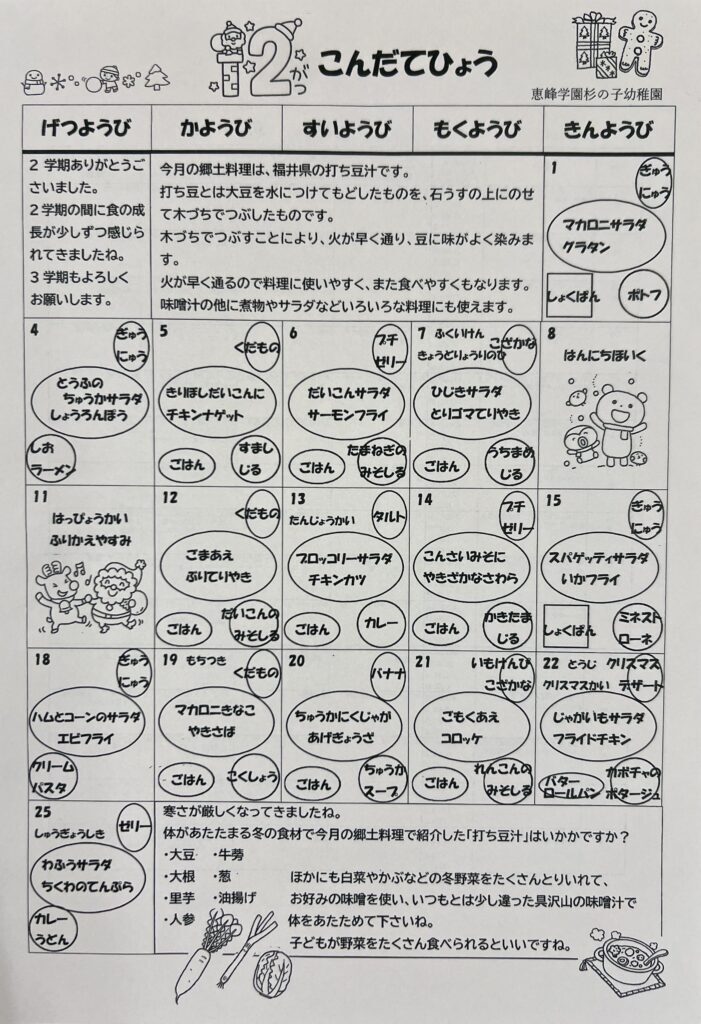 12がつ
こんだてひょう
恵峰学園杉の子幼稚園
げつようび かようび すいようび もくようび きんようび
2 学期ありがとうご
ざいました。
2学期の間に食の成
長が少しずつ感じら
れてきましたね。
3 学期もよろしく
お願いします。
今月の郷土料理は、福井県の打ち豆汁です。
打ち豆とは大豆を水につけてもどしたものを、石うすの上にのせ
て木づちでつぶしたものです。
木づちでつぶすことにより、火が早く通り、豆に味がよく染みま
す。
火が早く通るので料理に使いやすく、また食べやすくもなります。
味噌汁の他に煮物やサラダなどいろいろな料理にも使えます。
1
ぎゅう
にゅう
マカロニサラダ
グラタン
しょくぱん
ポトフ
4
ぎゅう
にゅう
とうふの
ちゅうかサラダ
しょうろんぽう
しお
ラーメン
5
くだもの
きりぼしだいこんに
チキンナゲット
ごはん
すまし
じる
6
プチ
ゼリー
だいこんサラダ
サーモンフライ
ごはん
たまねぎの
みそしる
7 ふくいけん
きょうどりょうりのひ
こざかな
ひじきサラダ
とりゴマてりやき
ごはん
うちまめ
じる
8
はんにちほいく
11
はっぴょうかい
ふりかえやすみ
12
くだもの
ごまあえ
ぶりてりやき
ごはん
だいこんの
みそしる
13
たんじょうかい
タルト
ブロッコリーサラダ
チキンカツ
ごはん
カレー
14
プチ
ゼリー
こんさいみそに
やきざかなさわら
ごはん
かきたま
じる
15
ぎゅう
にゅう
スパゲッティサラダ
いかフライ
しょくぱん
ミネスト
ローネ
18
ぎゅう
にゅう
ハムとコーンのサラダ
エビフライ
クリーム
パスタ
19 もちつき
くだもの
マカロニきなこ
やきさば
ごはん
こくしょう
20
バナナ
ちゅうかにくじゃが
あげぎょうざ
ごはん
ちゅうか
スープ
21
いもけんぴ
こざかな
ごもくあえ
コロッケ
ごはん
れんこんの
みそしる
22 とうじ
クリスマスかい
クリスマス
デザート
じゃがいもサラダ
フライドチキン
バター
ロールパン
カボチャの
ポタージュ
25
しゅうぎょうしき
ゼリー
わふうサラダ
ちくわのてんぷら
カレー
うどん
寒さが厳しくなってきましたね。
体があたたまる冬の食材で今月の郷土料理で紹介した「打ち豆汁」はいかかですか？
・大豆 ・牛蒡
・大根 ・葱
・里芋 ・油揚げ
・人参
ほかにも白菜やかぶなどの冬野菜をたくさんとりいれて、
お好みの味噌を使い、いつもとは少し違った具沢山の味噌汁で
体をあたためて下さいね。
子どもが野菜をたくさん食べられるといいですね。